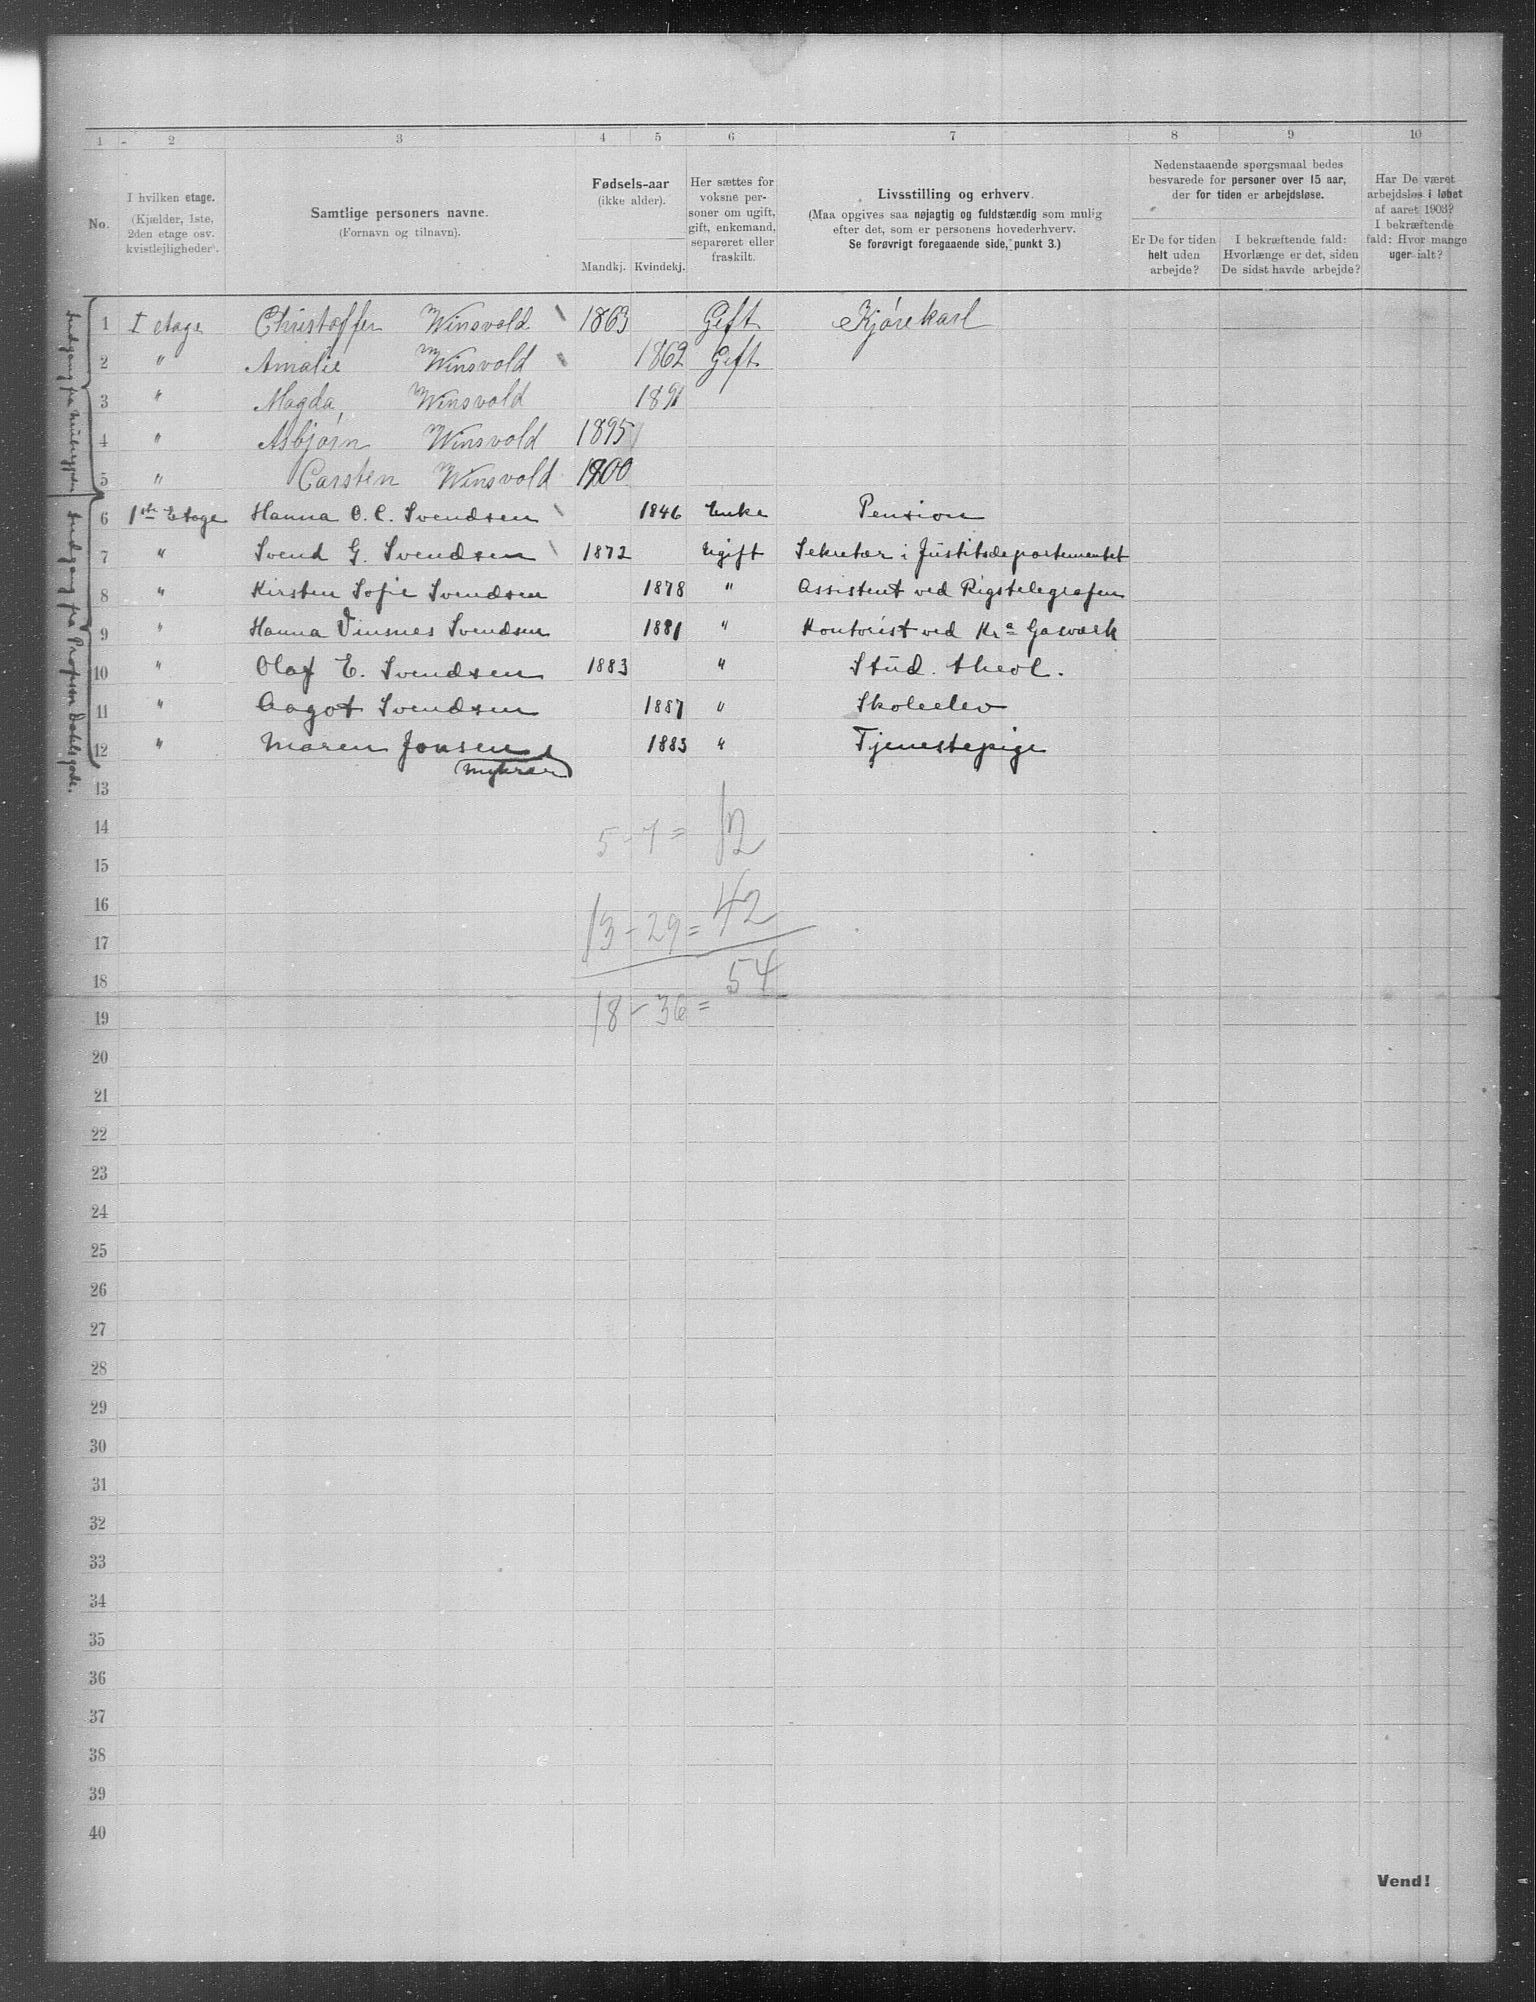 1 2 3 4 5 6 7 8 9 10
No.
I hvilken etage.
(Kjælder, 1ste,
2den etage osv.
kvistlejligheder).
Samtlige personers navne.
(Fornavn og tilnavn).
Fødsels-aar
(ikke alder).
Mandkj. Kvindekj.
Her sættes for
voksne per-
soner om ugift,
gift, enkemand,
separeret eller
fraskilt.
Livsstilling og erhverv.
(Maa opgives saa nøjagtig og fuldstærdig som mulig
efter det, som er personens hovederhverv.
Se forøvrigt foregaaende side, punkt 3.)
Nedenstaaende spørgsmaal bedes
besvarede for personer over 15 aar,
der for tiden er arbejdsløse.
Er De for tiden
helt uden
arbejde?
I bekræftende fald:
Hvorlænge er det, siden
De sidst havde arbejde?
Har De været
arbejdsløs i løbet
af aaret 1903?
I bekræftende
fald: Hvor mange
uger ialt?
Indgang fra
Indgang fra Professor Dahls gade.
1 I etage Christoffer Winsvold 1863 Gift Kjørekarl
2 " Amalie Winsvold 1862 Gift
3 " Magda, Winsvold 1891
4 " Asbjørn Winsvold 1895
5 " Carsten Winsvold 1900
6 1ste Etage Hanna O. C. Svendsen 1846 Enke Pension
7 " Svend G. Svendsen 1872 Ugift Sekretær i Justitsdepartementet
8 " Kirsten Sofie Svendsen 1878 " Assistent ved Rigstelegrafen
9 " Hanna Vinsnes Svendsen 1881 " Kontorist ved Kra Gasværk
10 " Olaf E. Svendsen 1883 " Stud. theol.
11 " Aagot Svendsen 1887 " Skoleelev
12 " Maren Jonsen 1883 " Tjenestepige
13
14 5 - 7 = 12
15
16
17 13 - 29 = 42
18 54
19 18 - 36 =
20
21
22
23
24
25
26
27
28
29
30
31
32
33
34
35
36
37
38
39
40
Vend!